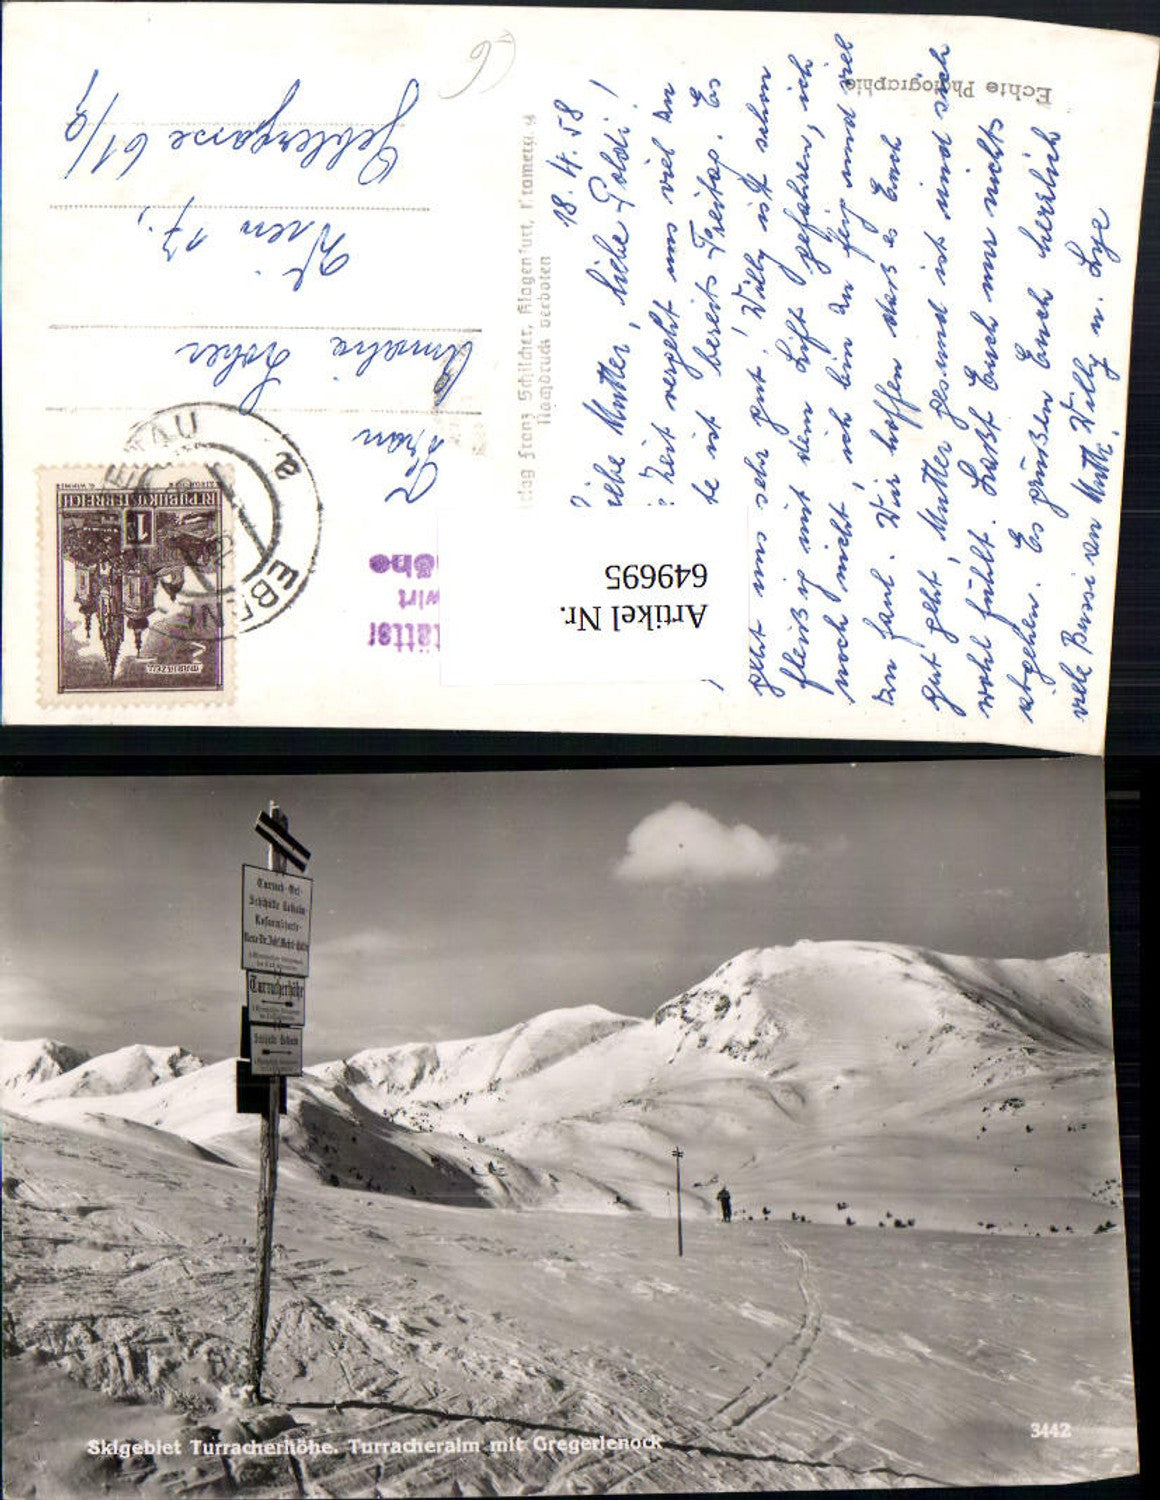 6
Echte Photographie
18. 4. 58
Liebe Mutter, liebe Poldi!
Zeit vergeht uns viel zu
ist bereits Freitag. Es
geht uns sehr gut! Willy ist schon
fleißig mit dem Lift gefahren, ich
noch nicht, ich bin zu feig und viel
zu faul. Wir hoffen daß es Euch
gut geht, Mutter gesund ist und sich
wohl fühlt. Laßt Euch nur nichts
abgehen. Es grüßen Euch herzlich
viele Bussi an Mutti. Willy u.
Franz Schilcher, Klagenfurt,
Nachdruck verboten
Frau
Amalie
Wien 17.,
Geblergasse 61/9
REPUBLIK ÖSTERREICH
1
MARIAZELL
EBENE
AU
a
Artikel Nr.
649695
wirt
Turracherhöhe
Skigebiet Turracherhöhe. Turracheralm mit Gregerlenock
3442